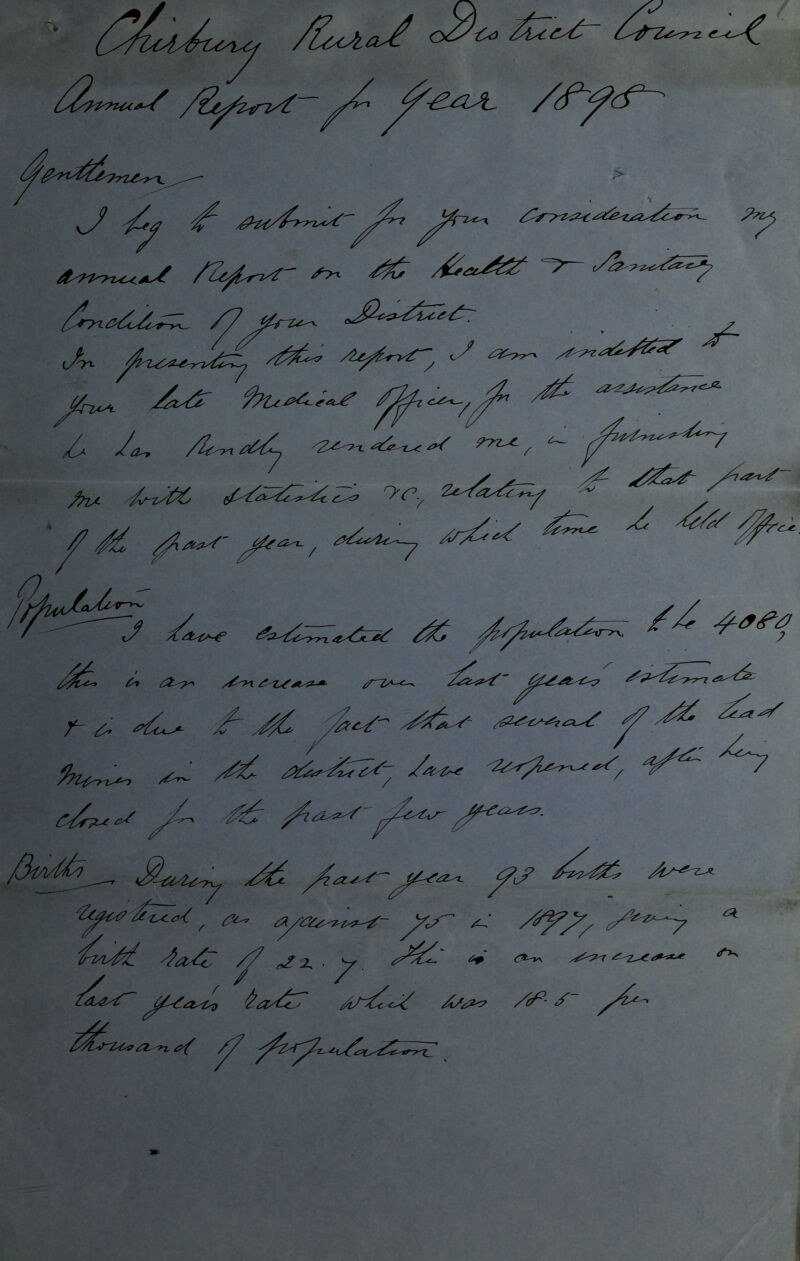 Chirbury Rural District Council
Annual Report for Year 1898
Gentlemen
I beg to submit for your consideration my
annual Report on the Health & Sanitary
Condition of your District.
In presenting this report, I am indebted to
your late Medical Officer, for the assistance
he has kindly rendered me, in furnishing
me with statistics &c., relating to that part
of the past year, during which time he held office.
Population
I have estimated the population to be 4080,
this is an increase over last year's estimate
& is due to the fact that several of the lead
Mines in the district, have reopened, after being
closed for the past few years.
Births During the past year 93 births were
registered, as against 75 in 1897, giving a
birth rate of 22.7. This is an increase on
last year's rate which was 18.5 per
thousand of population.